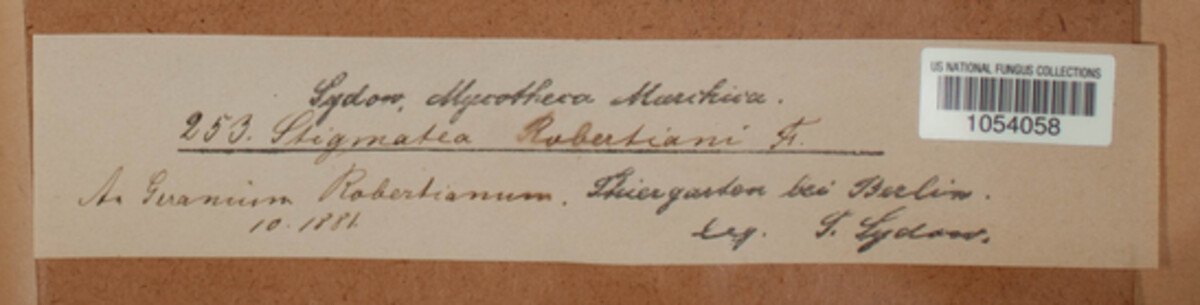 Sydow, Mycotheca Marchica.
253. Stigmatea Robertiani Fr.
An Geranium Robertianum. Thiergarten bei Berlin.
10. 1881.
Leg. P. Sydow.
US NATIONAL FUNGUS COLLECTIONS
1054058